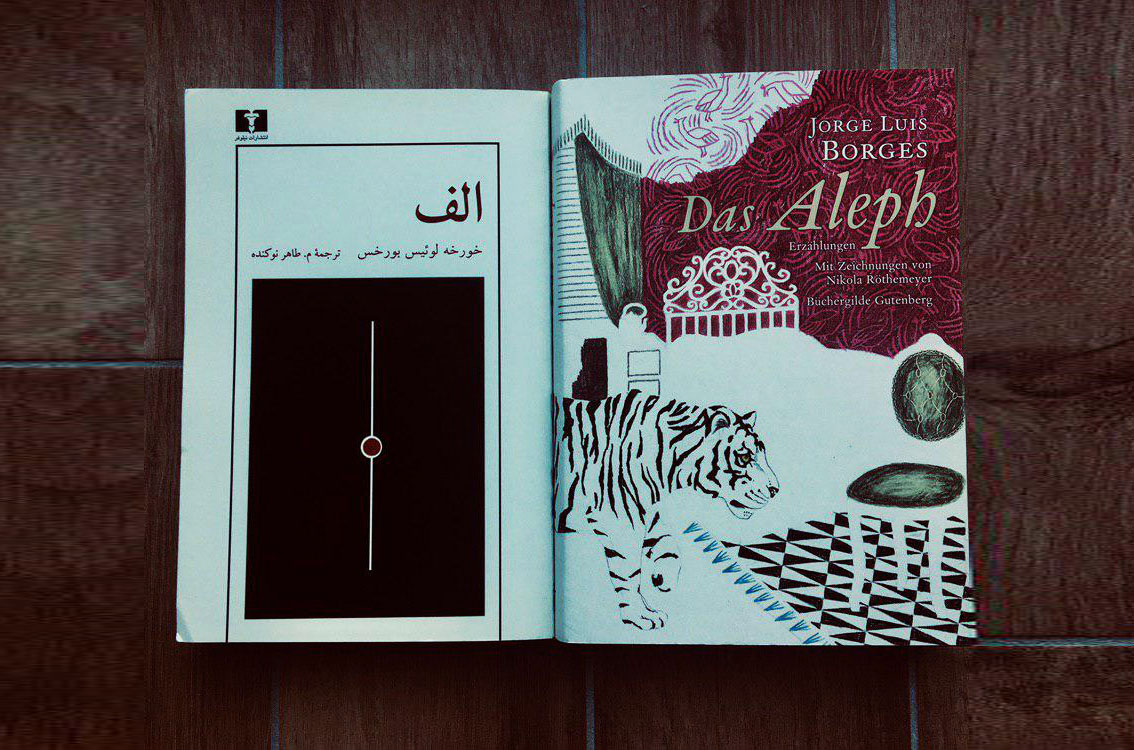 انتشارات نیلوفر
الف
خورخه لوئیس بورخس ترجمهٔ م. طاهر نوکنده
JORGE LUIS
BORGES
Das Aleph
Erzählungen
Mit Zeichnungen von
Nikola Röthemeyer
Büchergilde Gutenberg